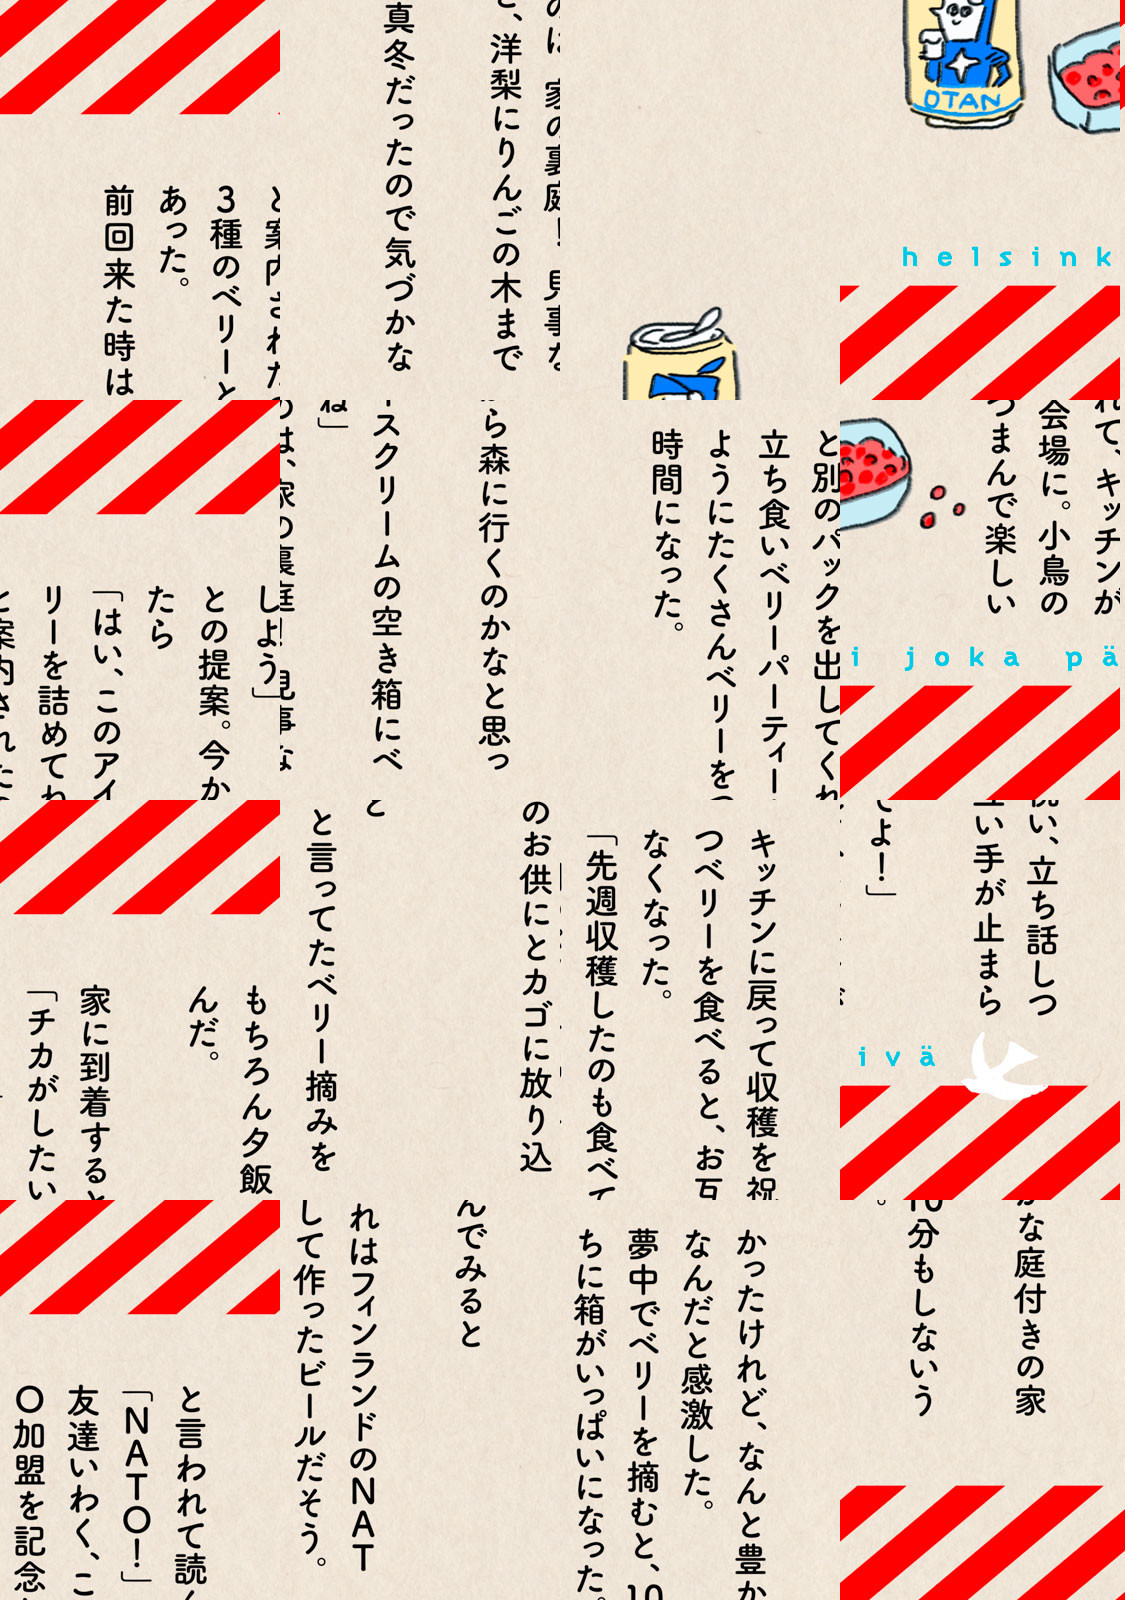 と案内された
3種のベリーと
あった。
前回来た時は
のは、家の裏庭！見事な
と、洋梨にりんごの木まで
真冬だったので気づかな
OTAN
helsink
しよう」
との提案。今か
たら
「はい、このアイ
リーを詰めてね
と案内された
のは、家の裏庭！見事な
ら森に行くのかなと思っ
ースクリームの空き箱にベ
ね」
と別のパックを出してくれ
立ち食いベリーパーティー
ようにたくさんベリーをつ
時間になった。
れて、キッチンが
会場に。小鳥の
つまんで楽しい
i joka pä
もちろん夕飯
んだ。
家に到着すると
「チカがしたい
のお供にとカゴに放り込
と
と言ってたベリー摘みを
キッチンに戻って収穫を祝
つベリーを食べると、お互
なくなった。
「先週収穫したのも食べて
祝い、立ち話しつ
互い手が止まら
てよ！」
ivä
と言われて読ん
「NATO！」
友達いわく、こ
O加盟を記念
んでみると
れはフィンランドのNAT
して作ったビールだそう。
かったけれど、なんと豊か
なんだと感激した。
夢中でベリーを摘むと、10
ちに箱がいっぱいになった。
かな庭付きの家
10分もしないう
。